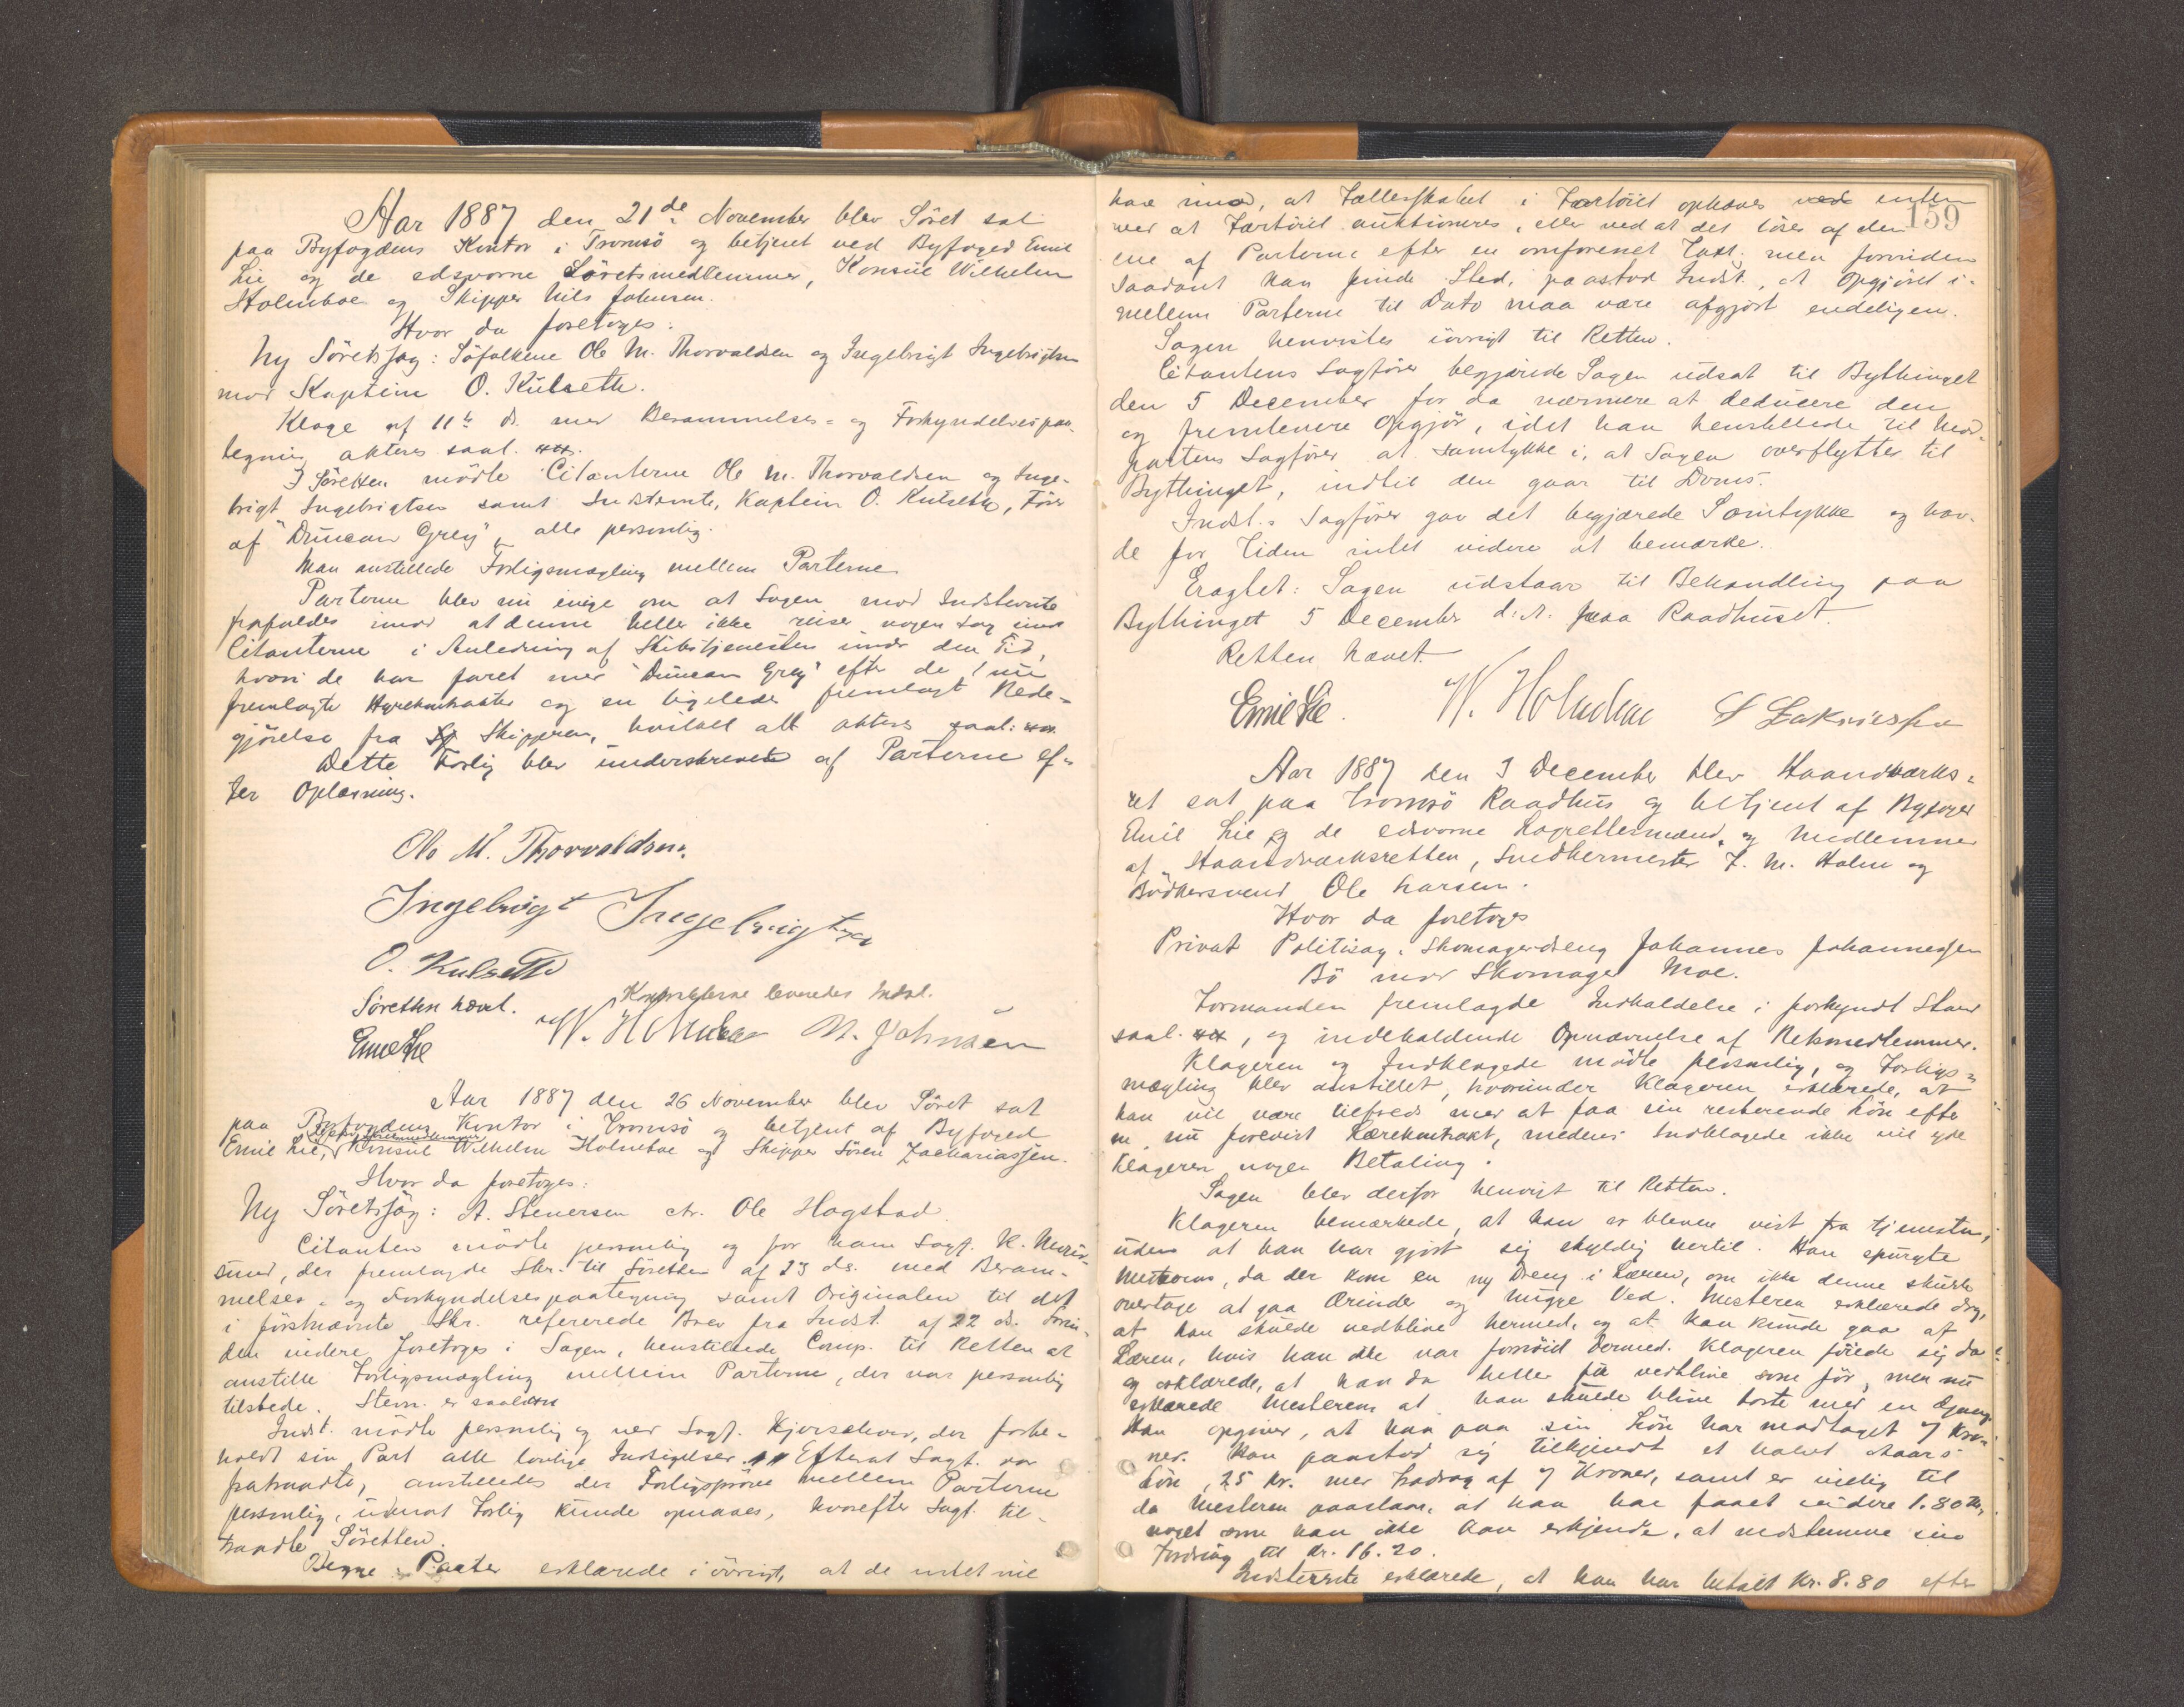 Aar 1887 den 21de November blev Söret sat
paa Byfogdens Kontor i Tromsö og betjent ved Byfoged Emil
Lie og de edsvorne Söretsmedlemmer, Konsul Wilhelm
Holmboe og Skipper Nils Johnsen.
Hvor da foretoges:
Ny Söretssag: Söfolkene Ole M. Thorvaldsen og Ingebrigt Ingebrigtsen
mod Kaptein O. Kulseth.
Klage af 11te ds. med Berammelses- og Forkyndelsespaa-
tegning akteres saal.
I Söretten mödte Citanterne Ole M. Thorvaldsen og Inge-
brigt Ingebrigtsen samt Indstevnte, Kaptein O. Kulseth, Förer
af "Duncan Grey", alle personlig.
Man anstillede Forligsmægling mellem Parterne.
Parterne blev nu enige om at Sagen mod Indstevnte
frafaldes imod at denne heller ikke reiser nogen Sag imod
Citanterne i Anledning af Skibstjenesten under den Tid,
hvori de har faret med "Duncan Grey" efter de nu
fremlagte Hyrekontrakter og en ligeledes fremlagt Rede-
gjörelse fra Skipperen, hvilket alt akteres saal:
Dette Forlig blev underskrevet af Parterne ef-
ter Oplæsning.
Ole M. Thorvaldsen
Ingebrigt Ingebrigtsen
O. Kulseth
Söretten hævet. Kontrakterne leveredes Indst.
Emil Lie W. Holmboe N. Johnsen
Aar 1887 den 26 November blev Söret sat
paa Byfogdens Kontor i Tromsö og betjent af Byfoged
Emil Lie, Konsul Wilhelm Holmboe og Skipper Sören Zachariassen.
Hvor da foretoges:
Ny Söretssag: A. Stenersen ctr. Ole Hagstad.
Citanten mödte personlig og for ham Sagf. K.
der fremlagde Skr. til Söretten af 23 ds. med Beram-
melses- og Forkyndelsespaategning samt Originalen til det
i förstnævnte Skr. refererede Brev fra Indst. af 22 ds. Förin-
den videre foretoges i Sagen, henstillede Comp. til Retten at
anstille Forligsmægling mellem Parterne, der var personlig
tilstede. Stevn. er saalydende
Indst. mödte personlig og ved Sagf. der forbe-
holdt sin Part alle lovlige Indsigelser. Efterat Sagf. var
fratraadte, anstilledes der Forligspröve mellem Parterne
personlig, udenat Forlig kunde opnaaes, hvorefter Sagf. til-
traadte Söretten.
Begge Parter erklærede iövrigt, at de intet vil
159
have imod, at Fællesskabet i Fartöiet ophæves ved enten
ved at Fartöiet auktioneres, eller ved at det löses af den
ene af Parterne efter en omforenet Taxt; men forinden
saadant kan finde Sted, paastod Indst., at Opgjöret i-
mellem Parterne til Dato maa være afgjort endeligen.
Sagen henvistes iövrigt til Retten.
Citantens Sagförer begjærede Sagen udsat til Bythinget
den 5 December for da nærmere at deducere den
og fremlevere Opgjör, idet han henstillede til Mod-
partens Sagförer at samtykke i, at Sagen overflyttes til
Bythinget, indtil den gaar til Doms.
Indst.s Sagförer gav det begjærede Samtykke og hav-
de for Tiden intet videre at bemærke.
Eragtet: Sagen udstaar til Behandling paa
Bythinget 5 December d.A. paa Raadhuset.
Retten hævet.
Emil Lie. W. Holmboe S Zakriesen
Aar 1887 den 3 December blev Haandværks-
ret sat paa Tromsö Raadhus og betjent af Byfoged
Emil Lie og de edsvorne Lagrettesmænd og Medlemmer
af Haandværksretten, Smedhermester J. M. Holm og
Bödkersvend Ole Larsen.
Hvor da foretoges
Privat Politisag: Skomagerdreng Johannes Johannessen
Bö mod Skomager Moe.
Formanden fremlagde Indkaldelse i forkyndt Stand
saal. , og indeholdende Opnævnelse af Retsmedlemmer.
Klageren og Indklagede mödte personlig, og Forligs-
mægling blev anstillet, hvorunder Klageren erklærede, at
han vil være tilfreds med at faa sin resterende Lön efter
en nu forevist Lærekontrakt, medens Indklagede ikke vil yde
Klageren nogen Betaling.
Sagen blev derfor henvist til Retten.
Klageren bemærkede, at han er bleven vist fra Tjenesten,
uden at han har gjort sig skyldig hertil. Han spurgte
Mesteren, da der kom en ny Dreng i Læren, om ikke denne skulde
overtage at gaa Ærinder og hugge Ved. Mesteren erklærede dog,
at han skulde vedblive hermed, og at han kunde gaa af
Læren, hvis han ikke var fornöiet dermed. Klageren föiede sig da
og erklærede, at han da heller fik vedblive som för, men nu
erklærede Mesteren at han skulde blive borte med en Gang.
Han opgiver, at han paa sin Lön har modtaget 7 Kro-
ner. Han paastod sig tilkjendt et halvt Aars
Lön, 25 Kr. med Fradrag af 7 Kroner, samt er villig til
da Mesteren paastaar, at han har faaet videre 1.80 Kr,
noget som han ikke kan erkjende, at nedstemme sin
Fordring til Kr. 16.20.
Indstevnte erklærede, at han har betalt Kr. 8.80 efter